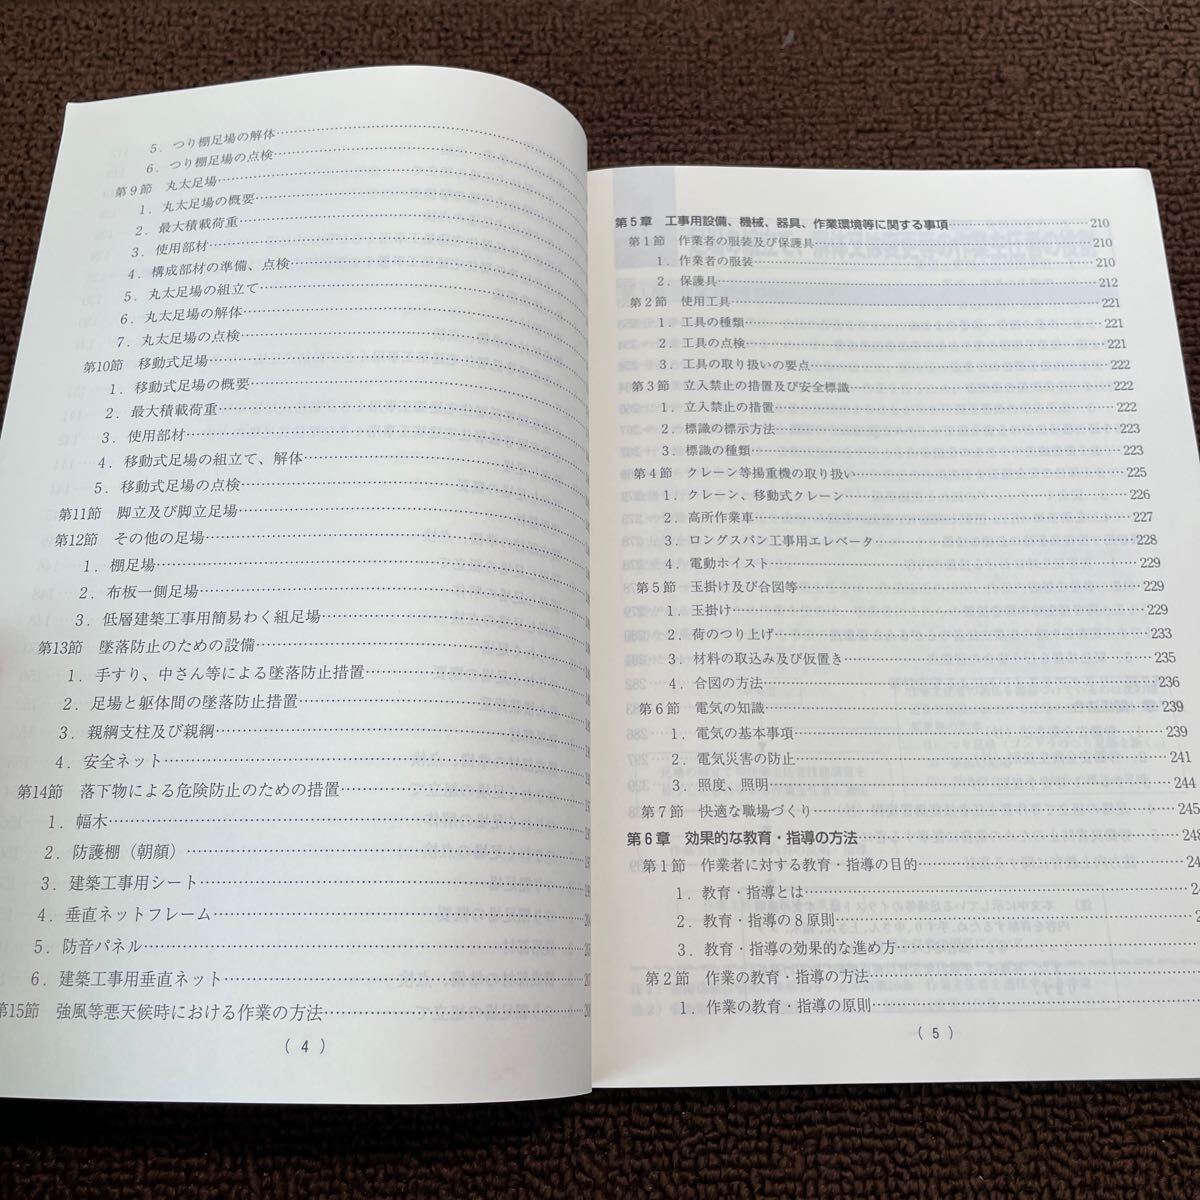 5．つり棚足場の解体
6．つり棚足場の点検
第9節　丸太足場
1．丸太足場の概要
2．最大積載荷重
3．使用部材
4．構成部材の準備、点検
5．丸太足場の組立て
6．丸太足場の解体
7．丸太足場の点検
第10節　移動式足場
1．移動式足場の概要
2．最大積載荷重
3．使用部材
4．移動式足場の組立て、解体
5．移動式足場の点検
第11節　脚立及び脚立足場
第12節　その他の足場
1．棚足場
2．布板一側足場
3．低層建築工事用簡易わく組足場
第13節　墜落防止のための設備
1．手すり、中さん等による墜落防止措置
2．足場と躯体間の墜落防止措置
3．親綱支柱及び親綱
4．安全ネット
第14節　落下物による危険防止のための措置
1．幅木
2．防護棚（朝顔）
3．建築工事用シート
4．垂直ネットフレーム
5．防音パネル
6．建築工事用垂直ネット
第15節　強風等悪天候時における作業の方法
（ 4 ）
第5章　工事用設備、機械、器具、作業環境等に関する事項 210
第1節　作業者の服装及び保護具 210
1．作業者の服装 210
2．保護具 212
第2節　使用工具 221
1．工具の種類 221
2．工具の点検 221
3．工具の取り扱いの要点 222
第3節　立入禁止の措置及び安全標識 222
1．立入禁止の措置 222
2．標識の標示方法 223
3．標識の種類 223
第4節　クレーン等揚重機の取り扱い 225
1．クレーン、移動式クレーン 226
2．高所作業車 227
3．ロングスパン工事用エレベータ 228
4．電動ホイスト 229
第5節　玉掛け及び合図等 229
1．玉掛け 229
2．荷のつり上げ 233
3．材料の取込み及び仮置き 235
4．合図の方法 236
第6節　電気の知識 239
1．電気の基本事項 239
2．電気災害の防止 241
3．照度、照明 244
第7節　快適な職場づくり 245
第6章　効果的な教育・指導の方法
第1節　作業者に対する教育・指導の目的
1．教育・指導とは
2．教育・指導の8原則
3．教育・指導の効果的な進め方
第2節　作業の教育・指導の方法
1．作業の教育・指導の原則
（ 5 ）